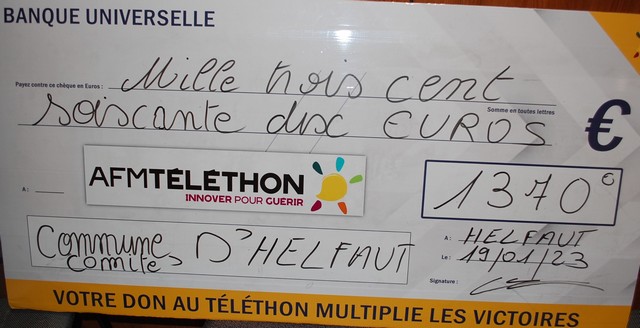 BANQUE UNIVERSELLE
Payez contre ce chèque en Euros : Mille trois cent
Somme en toutes lettres
soiscante disc EUROS
€
AFMTÉLÉTHON
INNOVER POUR GUÉRIR
1370€
À :
Commune D'HELFAUT
Comités
À : HELFAUT
Le : 19/01/23
Signature :
VOTRE DON AU TÉLÉTHON MULTIPLIE LES VICTOIRES